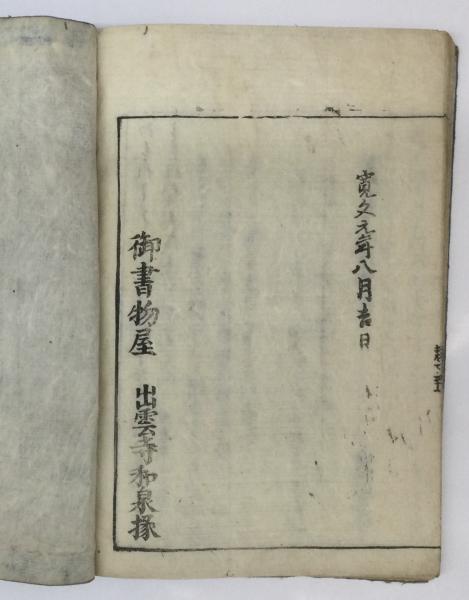 寛文元年八月吉日
御書物屋 出雲寺和泉掾